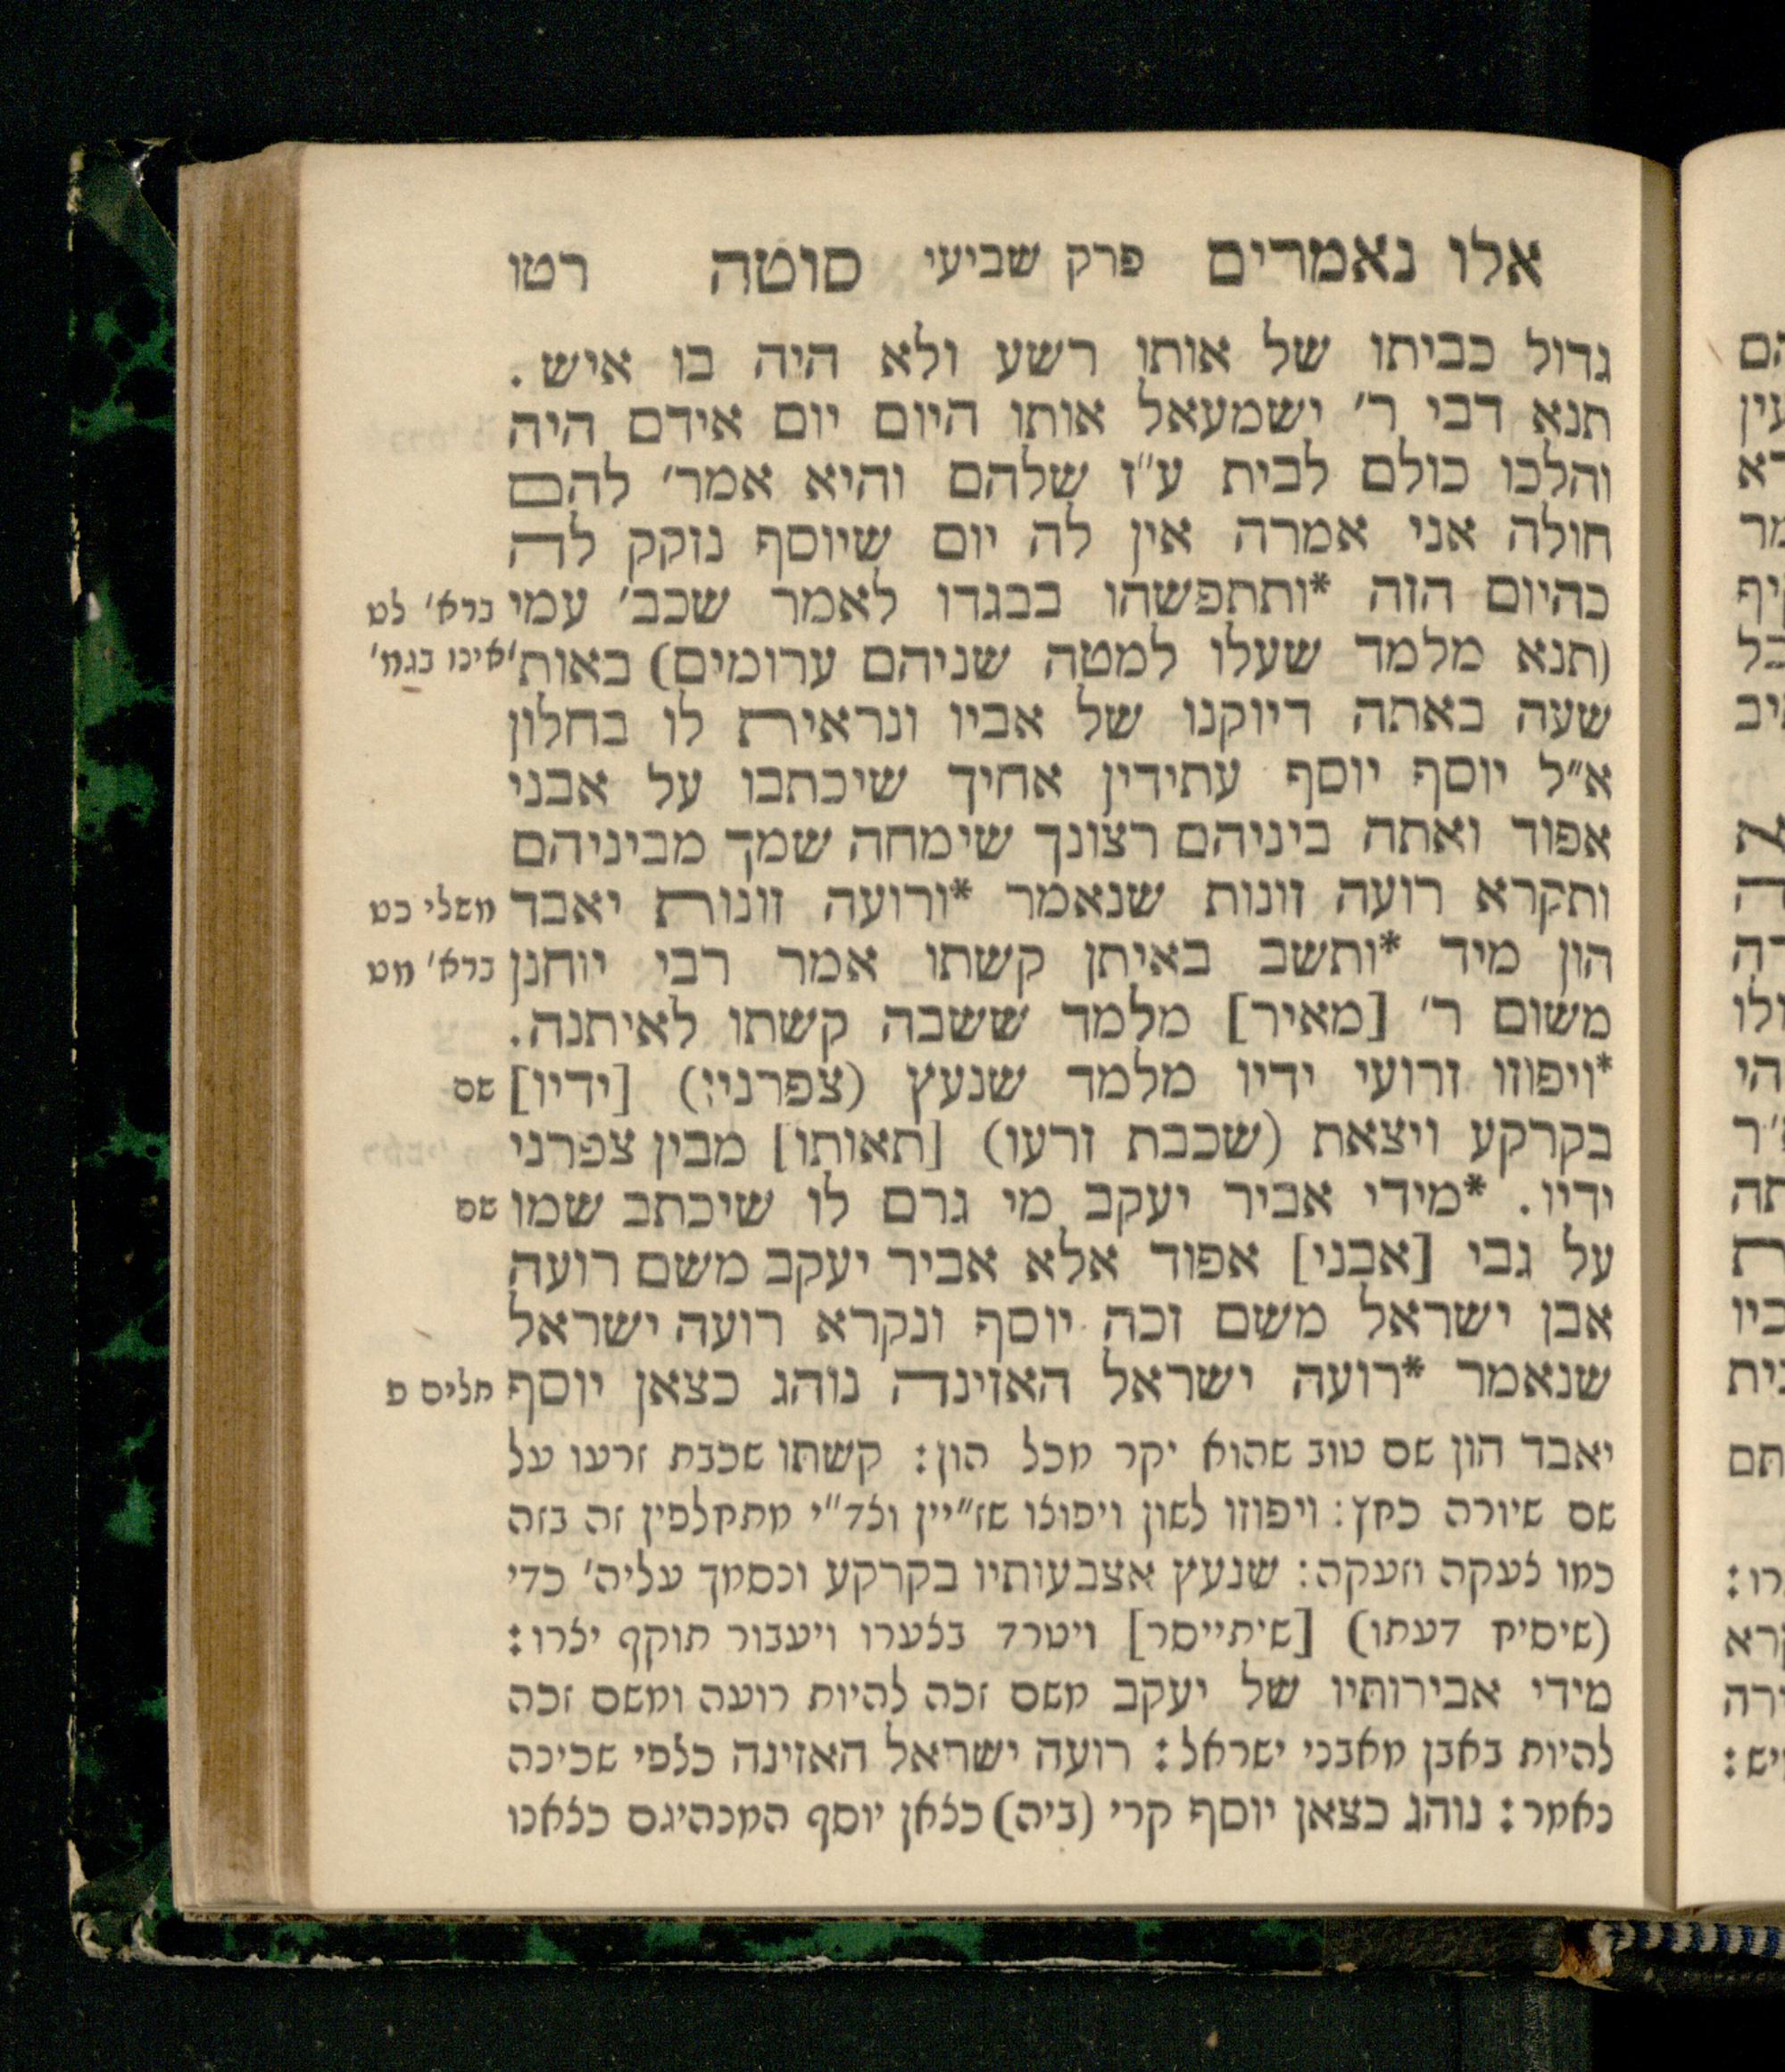 אלו נאמרים פרק שביעי סוטה רטו
גדול כביתו של אותו רשע ולא היה בו איש.
תנא דבי ר' ישמעאל אותו היום יום אידם היה
והלכו כולם לבית ע"ז שלהם והיא אמר' להם
חולה אני אמרה אין לה יום שיוסף נזקק לה
כהיום הזה *ותתפשהו בבגדו לאמר שכב' עמי ברא' לט
(תנא מלמד שעלו למטה שניהם ערומים) באות' אינו בגמ'
שעה באתה דיוקנו של אביו ונראית לו בחלון
א"ל יוסף יוסף עתידין אחיך שיכתבו על אבני
אפוד ואתה ביניהם רצונך שימחה שמך מביניהם
ותקרא רועה זונות שנאמר *ורועה זונות יאבד משלי כט
הון מיד *ותשב באיתן קשתו אמר רבי יוחנן ברא' מט
משום ר' [מאיר] מלמד ששבה קשתו לאיתנה.
*ויפוזו זרועי ידיו מלמד שנעץ (צפרניו) [ידיו] שם
בקרקע ויצאת (שכבת זרעו) [תאותו] מבין צפרני
ידיו. *מידי אביר יעקב מי גרם לו שיכתב שמו שם
על גבי [אבני] אפוד אלא אביר יעקב משם רועה
אבן ישראל משם זכה יוסף ונקרא רועה ישראל
שנאמר *רועה ישראל האזינה נוהג כצאן יוסף תלים פ
יאבד הון שם טוב שהוא יקר מכל הון: קשתו שכבת זרעו על
שם שיורה כחץ: ויפוזו לשון ויפוצו שז"יין וצד"י מתחלפין זה בזה
כמו צעקה וזעקה: שנעץ אצבעותיו בקרקע וכסמך עליה' כדי
(שיסיח דעתו) [שיתייסר] ויטרד בצערו ויעבור תוקף יצרו:
מידי אבירותיו של יעקב משם זכה להיות רועה ומשם זכה
להיות באבן מאבני ישראל: רועה ישראל האזינה כלפי שכינה
נאמר: נוהג כצאן יוסף קרי (ביה) כצאן יוסף המנהיגם כצאנו